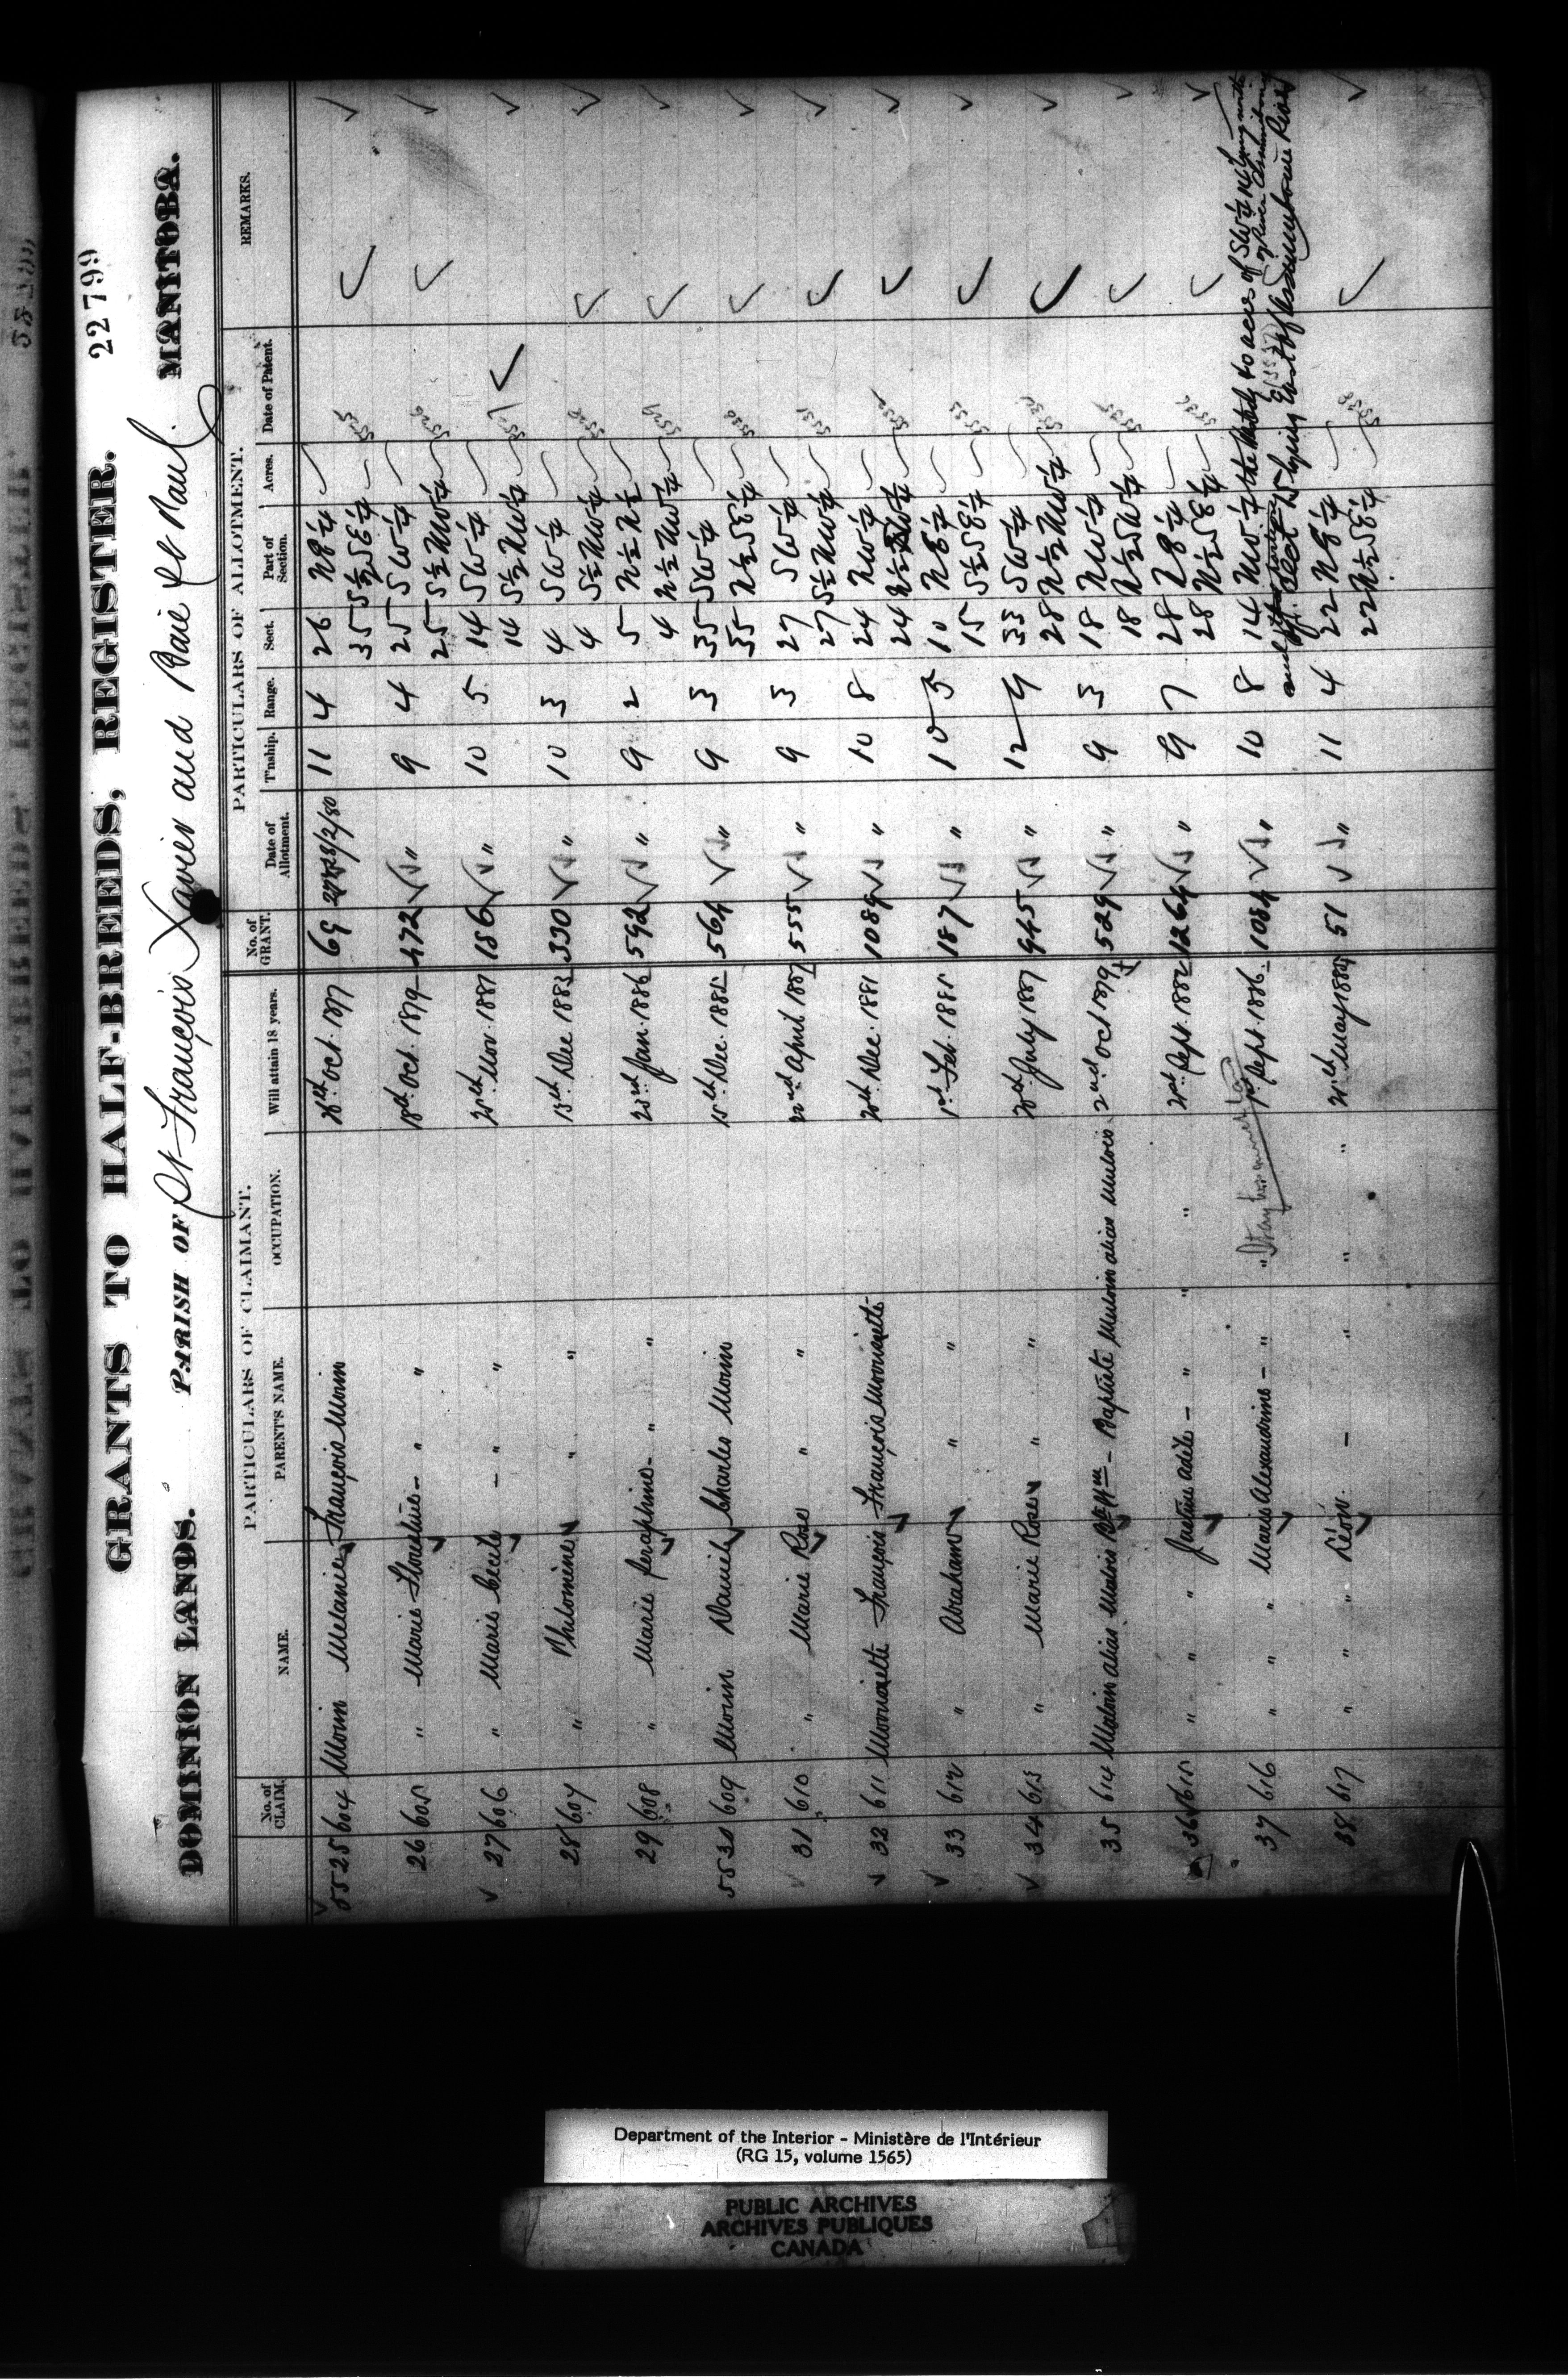 22799
GRANTS TO HALF-BREEDS, REGISTER.
DOMINION LANDS. PARISH OF St François Xavier and Baie St Paul. MANITOBA.
PARTICULARS OF CLAIMANT. PARTICULARS OF ALLOTMENT.
No. of CLAIM. NAME. PARENT'S NAME. OCCUPATION. Will attain 18 years. No. of GRANT. Date of Allotment. T'nship. Range. Sect. Part of Section. Acres. Date of Patent. REMARKS.
5525 604 Morin Melanie François Morin 28th Oct. 1877 69 23/2/80 11 4 26 NE¼
35 S½ SE¼ 5525
26 605 " Marie Florestine - " " 18th Oct. 1879 472 " 9 4 25 SW¼
25 S½ NW¼ 5526
27 606 " Marie Cecile - " " Nov. 1881 186 " 10 5 14 SW¼
14 S½ NW¼ 5527
28 607 " Philomène " " 13th Dec. 1883 330 " 10 3 4 SW¼
4 S½ NW¼ 5528
29 608 " Marie Seraphine - " " 23rd Jan. 1886 592 " 9 2 5 N½ N½
4 N½ NW¼ 5529
5530 609 Morin Daniel Charles Morin 15th Dec. 1885 564 " 9 3 35 SW¼
35 N½ SE¼ 5530
31 610 " Marie Rose " " 22nd April 1887 555 " 9 3 27 SW¼
27 S½ NW¼ 5531
32 611 Morrisette François François Morrisette 20th Dec. 1881 1089 " 10 8 24 NW¼
24 N½ SW¼ 5532
33 612 " Abraham " " 1st Feb. 1885 187 " 10 5 10 NE¼
15 S½ SE¼ 5533
34 613 " Marie Rose " " July 1887 945 " 12 4 33 SW¼
28 N½ NW¼ 5534
35 614 Maloin alias Malois Btte - Baptiste Maloin alias Malois 2nd Oct 1879 529 " 9 3 18 NW¼
18 N½ SW¼ 5535
36 615 " " " Justine Adèle - " " " 21st Sept. 1882 1264 " 9 7 28 NE¼
28 N½ SE¼ 5536
37 616 " " Marie Alexandrine - " " 1st Sept. 1886 1084 " 10 8 14 NW¼ & the acres of SW¼ lying north of River Assiniboine
Sect 15 lying East of Assiniboine River
38 617 " " " Léon - " " " May 1884 51 " 11 4 22 NE¼
22 N½ SE¼ 5538
Department of the Interior - Ministère de l'Intérieur
(RG 15, volume 1565)
PUBLIC ARCHIVES
ARCHIVES PUBLIQUES
CANADA